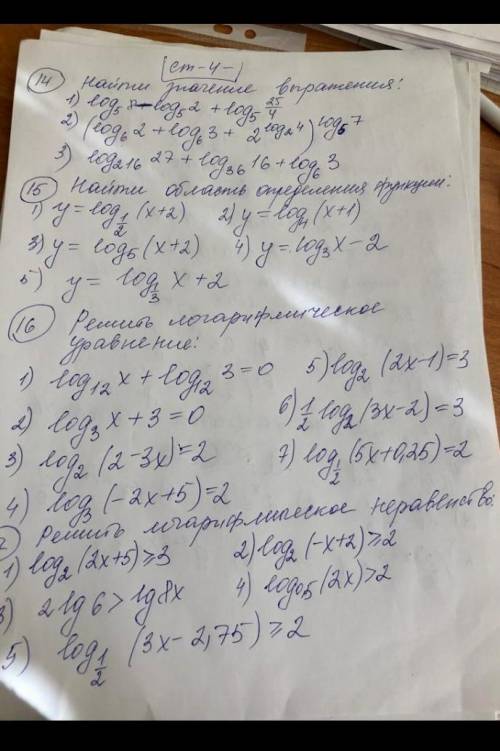 [ст-4-]
14 Найти значение выражения:
1) log₅8 - log₅2 + log₅ 25/4
2) (log₆2 + log₆3 + 2^(log₂4))^(log₅7)
3) log₂₁₆27 + log₃₆16 + log₆3
15 Найти область определения функции:
1) y = log_(1/2) (x+2) 2) y = log₄(x+1)
3) y = log₅(x+2) 4) y = log₃x - 2
5) y = log_(1/3) x + 2
16 Решить логарифмическое
уравнение:
1) log₁₂x + log₁₂3 = 0 5) log₂(2x-1) = 3
2) log₃x + 3 = 0 6) 1/2 log₂(3x-2) = 3
3) log₂(2-3x) = 2 7) log_(1/2) (5x+0,25) = 2
4) log₃(-2x+5) = 2
7 Решить логарифмическое неравенство.
1) log₂(2x+5) ≥ 3 2) log₂(-x+2) ≥ 2
3) 2lg6 > lg8x 4) log₀₅(2x) > 2
5) log_(1/2) (3x-2,75) ≥ 2